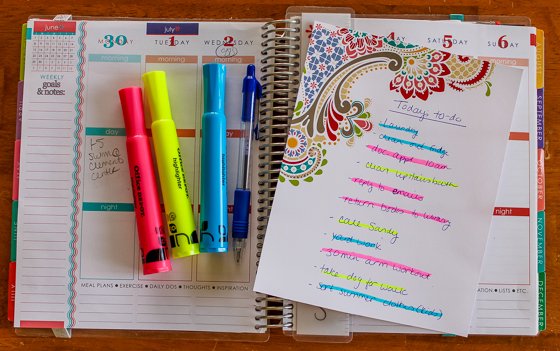 june
july
MONDAY 30
TUESDAY 1
WEDNESDAY 2
4
SATURDAY 5
SUNDAY 6
morning
morning
morning
WEEKLY
goals
& notes:
day
1-5
swim @
clement
center
night
highlighter
MEAL PLANS • EXERCISE • DAILY DOS • THOUGHTS • INSPIRATION
LISTS, ETC.
OCTOBER
NOVEMBER
DECEMBER
Today's to-do
- Laundry
- clean and tidy
- doc appt 10am
- clean upstairs bath
- reply emails
- return books to library
- call Sandy
- yard work
- 30 min arm workout
- take dog for walk
- sort summer clothes (kids)